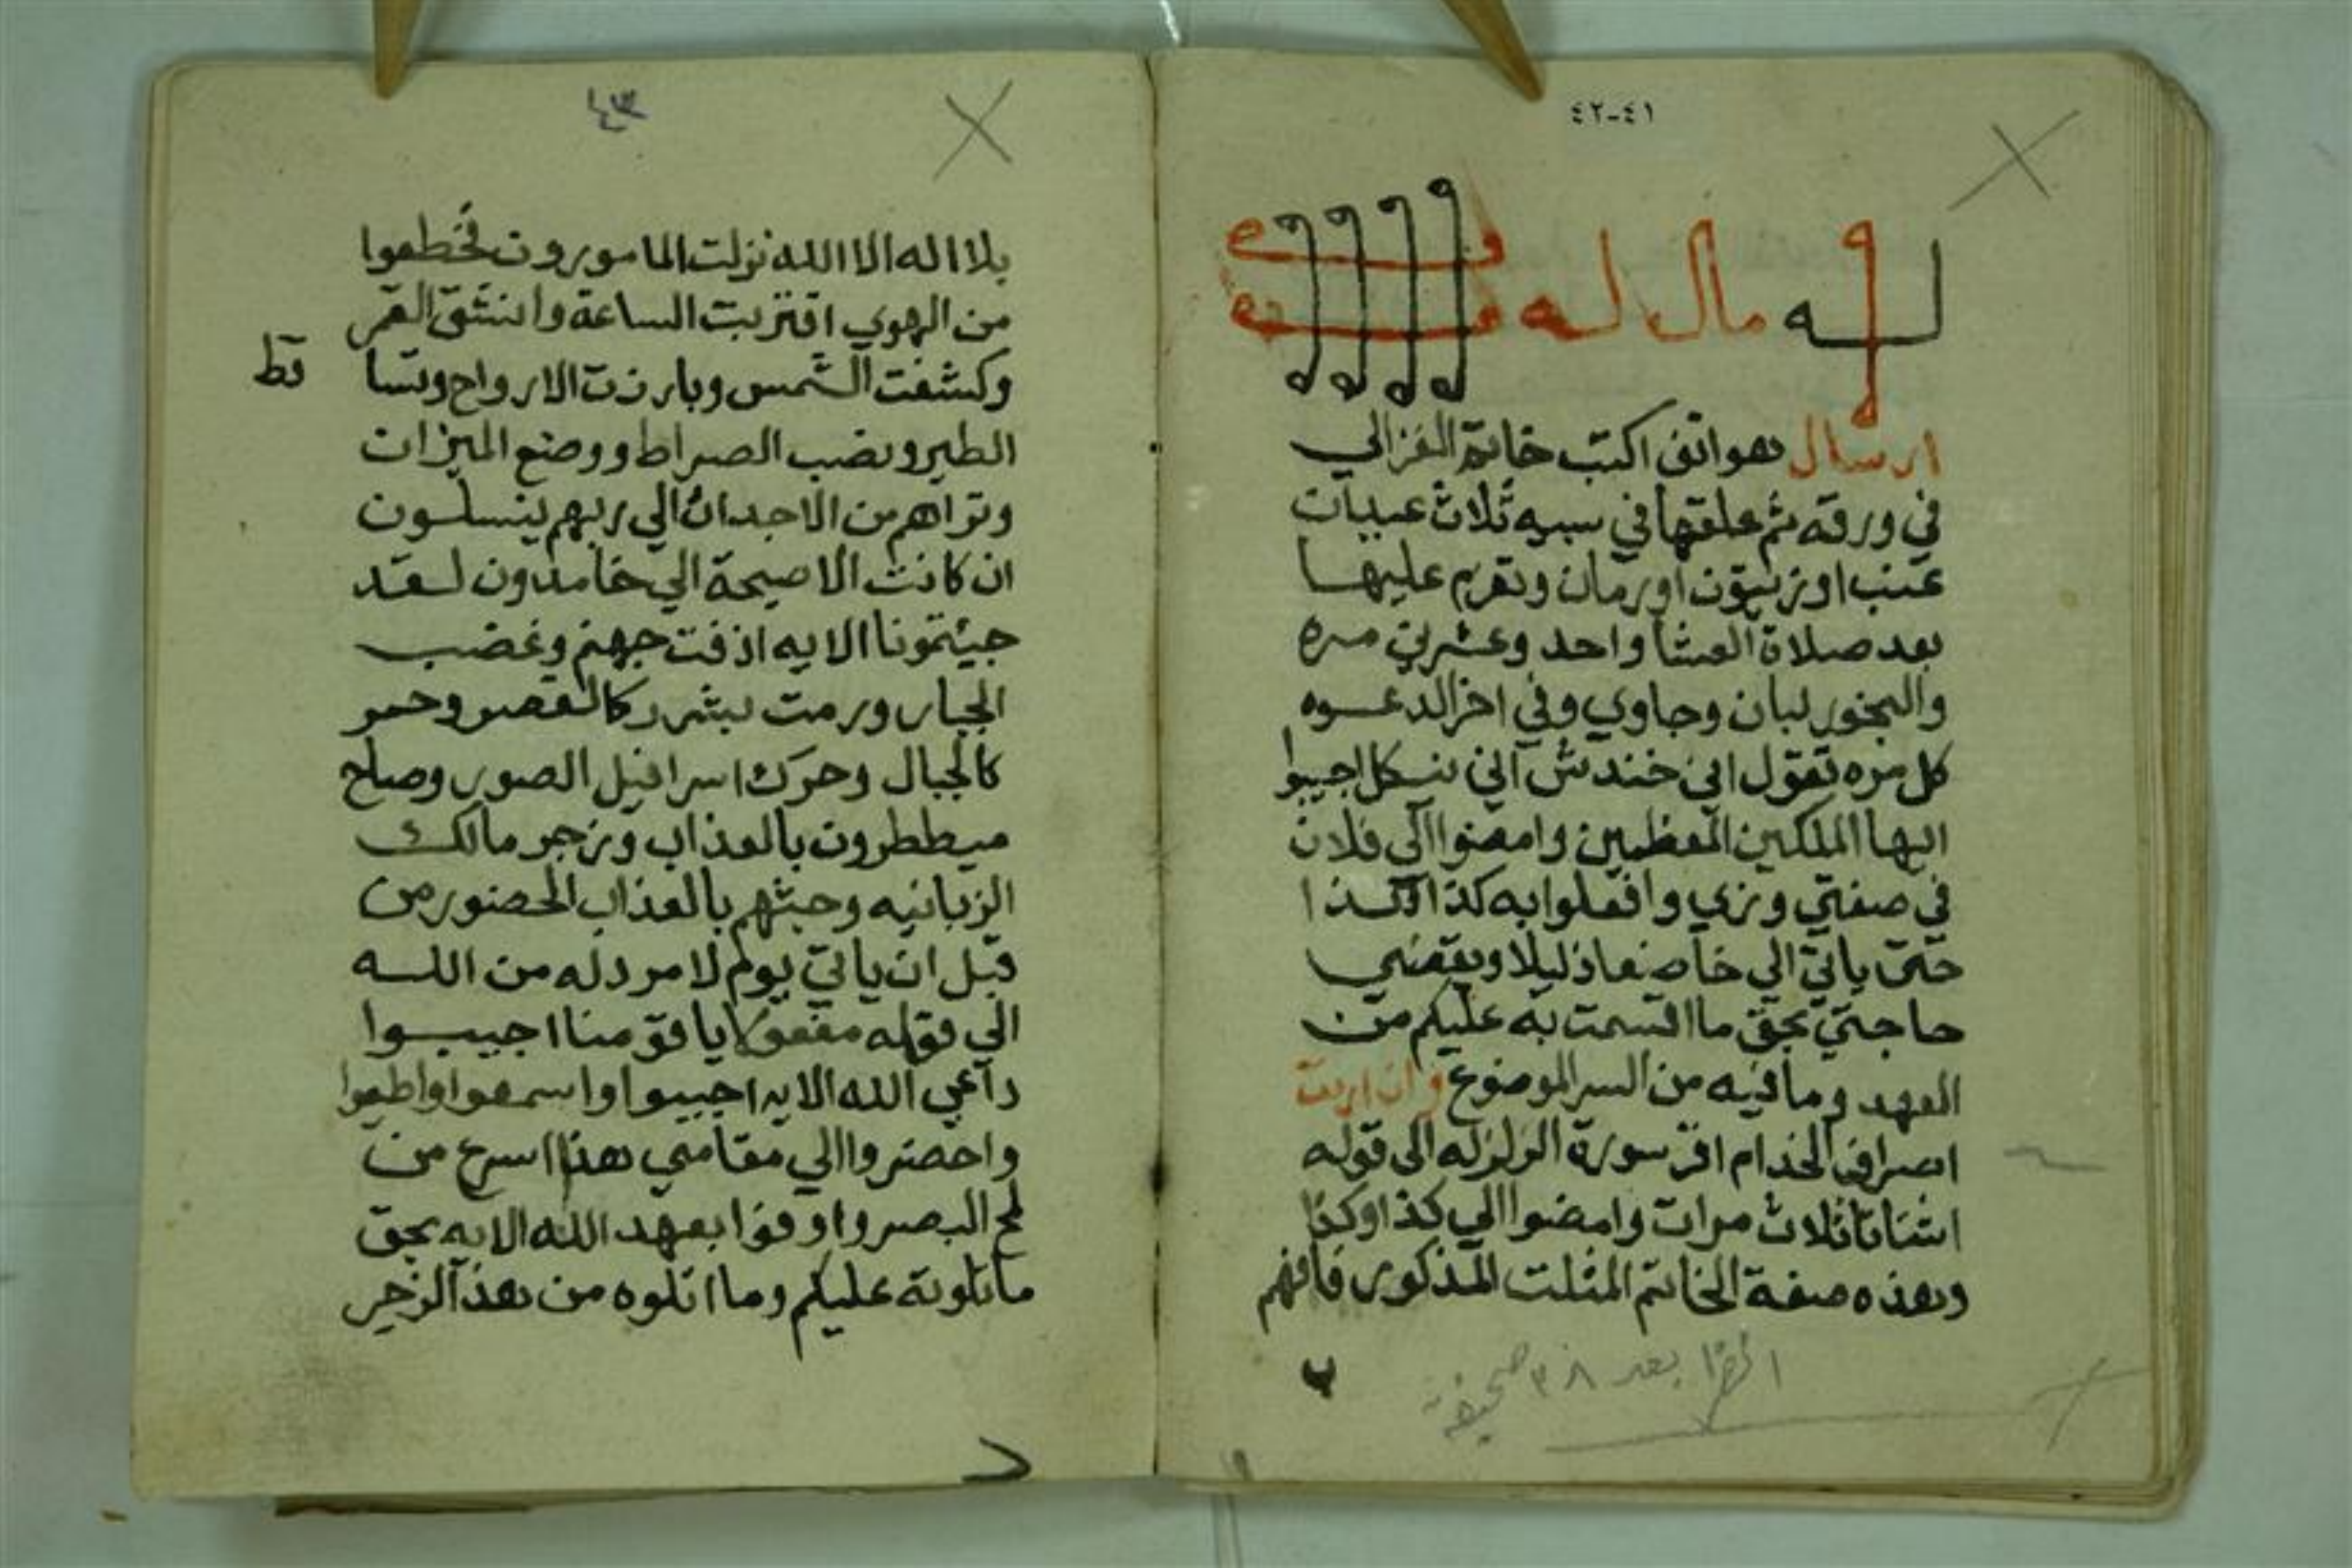 ٤١-٤٢
له مال له
ارسال هواتف اكتب خاتم الغزالي
في ورقه ثم علقها في سيبه ثلاث عيبات
عنب او زيتون او رمان وتعزم عليها
بعد صلاة العشا واحد وعشرين مره
والبخور لبان وجاوي وفي اخر الدعوه
كل مره تقول اني خندش اني ننكل اجيبوا
ايها الملكين المعظمين وامضوا الي فلان
في صفتي وزي وافعلوا به كذا وكذا
حتى ياتي الي خاضعا ذليلا ويقضي
حاجتي بحق ما اقسمت به عليكم من
العهد وما فيه من السر الموضوع وان اردت
اصراف الخدام اقر سورة الزلزله الى قوله
اشتاتا ثلاث مرات وامضوا الي كذا وكذا
وهذه صفة الخاتم المثلت المذكور فافهم
بعد ٣٨ صحيفة
٤٣
بلا اله الا الله نزلت المامورون فخطعوا
من الهوي اقتربت الساعة وانشق القمر
وكشفت الشمس وبارزت الارواح وتسا قط
الطير ونصب الصراط ووضع الميزان
وتراهم من الاجداث الي ربهم ينسلون
ان كانت الا صيحة الي خامدون لقد
جيئتمونا الايه ازفت جهنم وغضب
الجبار ورمت بشرر كالقصر وحمر
كالجبال وحرك اسرافيل الصور وصاح
ميططرون بالعذاب وزجر مالك
الزبانيه وحثهم بالعذاب الحضور من
قبل ان ياتي يوم لا مرد له من الله
الي قوله يا قومنا اجيبوا
داعي الله الايه اجيبوا واسمعوا واطيعوا
واحضروا الي مقامي هذا اسرع من
لمح البصر واوفوا بعهد الله الايه بحق
ما تلوته عليكم وما اتلوه من هذا الزجر